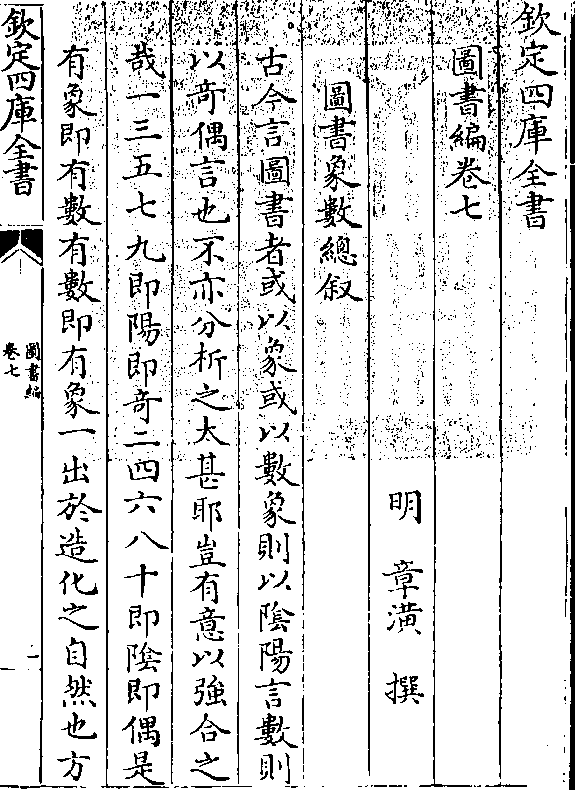 欽定四庫全書
圖書編卷七
明 章潢 撰
圖書象數總叙
古今言圖書者或以象或以數象則以陰陽言數則
以奇偶言也不亦分析之太甚耶豈有意以強合之
哉一三五七九即陽即奇二四六八十即陰即偶是
有象即有數有數即有象一出於造化之自然也方
欽定四庫全書
圖書編
卷七
一